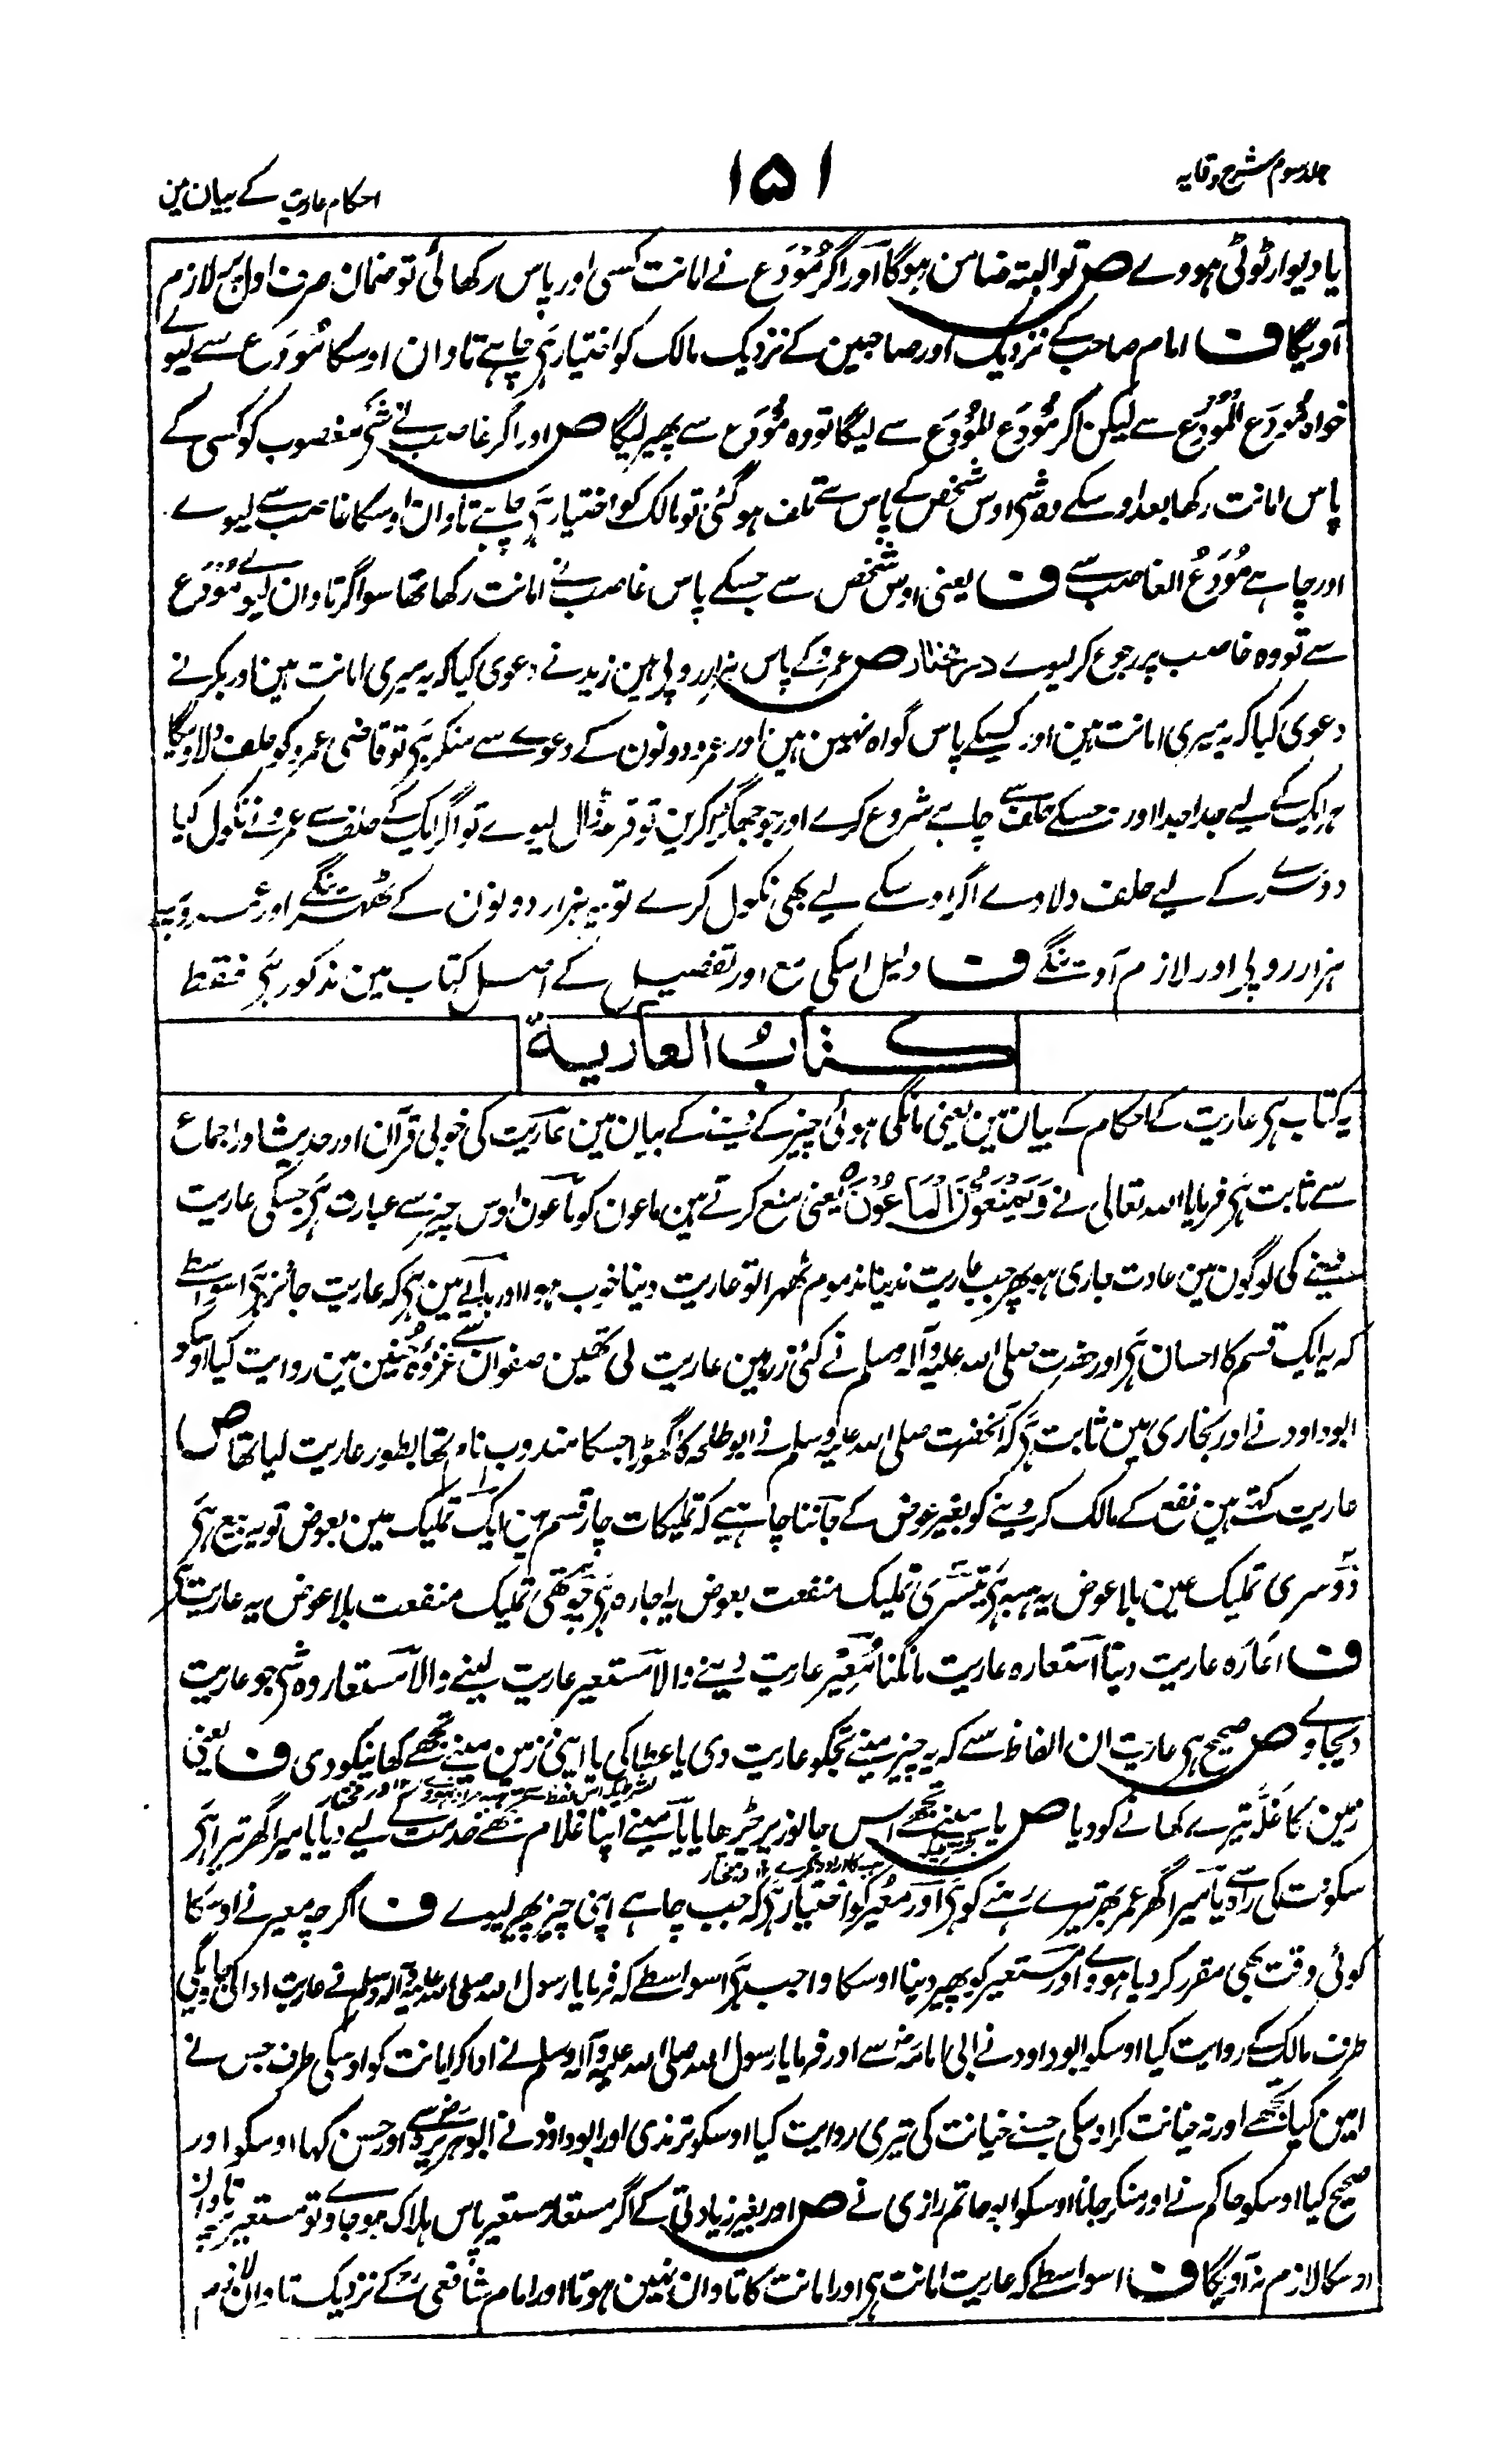 جلد سوم شرح وقایہ
۱۵۱
احکام عاریت کے بیان مین
یا دیوار ٹوٹی ہووے ص تو البتہ ضامن ہوگا اور اگر مُوْدَع نے امانت کسی اور پاس رکھائی تو ضمان صرف اول پر لازم
آویگا ف امام صاحب کے نزدیک اور صاحبین کے نزدیک مالک کو اختیار ہی چاہے تاوان اوسکا مُودَع سے لیوے
خواہ مُودَع المُودَع سے لیکن اگر مُودَع المُودَع سے لیگا تو وہ مُودَع سے پھیر لیگا ص اور اگر غاصب نے شی مغصوب کو کسی کے
پاس امانت رکھا بعد اوسکے وہ شی اوس شخص کے پاس سے تلف ہوگئی تو مالک کو اختیار ہی چاہے تاوان اوسکا غاصب سے لیوے
اور چاہے مُودَعُ الغاصب سے ف یعنی اوس شخص سے جسکے پاس غاصب نے امانت رکھا تھا سو اگر تاوان لیوے مُودَع
سے تو وہ غاصب پر رجوع کر لیوے درمختار ص عمرو کے پاس ہزار روپی ہین زید نے دعوی کیا کہ یہ میری امانت ہین اور بکر نے
دعوی کیا کہ یہ میری امانت ہین اور کسیکے پاس گواہ نہین ہین اور عمرو دونون کے دعوے سے منکر ہی تو قاضی عمرو کو حلف دلاویگا
ہر ایک کے لیے جدا جدا اور جسکے حلف سے چاہے شروع کرے اور جو جھگڑا کرین تو قرعہ ڈال لیوے تو اگر ایک کے حلف سے عمرو نے نکول کیا
دوسرے کے لیے حلف دلاوے اگر اوسکے لیے بھی نکول کرے تو یہ ہزار دونون کے ٹھہرینگے اور عمرو پر
ہزار روپی اور لازم آوینگے ف دلیل اسکی مع اور تفصیل کے اصل کتاب مین مذکور ہی فقط
کتاب العاریة
یہ کتاب ہی عاریت کے احکام کے بیان مین یعنی مانگی ہوئی چیز کے دینے کے بیان مین عاریت کی خوبی قرآن اور حدیث اور اجماع
سے ثابت ہی فرمایا اللہ تعالی نے وَیَمْنَعُوْنَ الْمَاعُوْنَ یعنی منع کرتے ہین ماعون کو ماعون اوس چیز سے عبارت ہی جسکی عاریت
دینے کی لوگون مین عادت جاری ہو پھر جب عاریت ندینا مذموم ٹھہرا تو عاریت دینا خوب ہوا اور ہدایے مین ہی کہ عاریت جائز ہی اسواسطے
کہ یہ ایک قسم کا احسان ہی اور حضرت صلی اللہ علیہ وآلہ وسلم نے کئی زرہین عاریت لی تھین صفوان سے غزوۂ حنین مین روایت کیا اوسکو
ابوداود نے اور بخاری مین ثابت ہی کہ آنحضرت صلی اللہ علیہ وسلم نے ابوطلحہ کا گھوڑا جسکا مندوب نام تھا بطور عاریت لیا تھا ص
عاریت کہتے ہین نفع کے مالک کر دینے کو بغیر عوض کے جاننا چاہیے کہ تملیکات چار قسم ہین ایک تملیک عین بعوض تو یہ بیع ہی
دوسری تملیک عین بلا عوض یہ ہبہ ہی تیسری تملیک منفعت بعوض یہ اجارہ ہی چوتھی تملیک منفعت بلا عوض یہ عاریت ہی
ف اعارہ عاریت دینا استعارہ عاریت مانگنا مُعِیْر عاریت دینے والا مستعیر عاریت لینے والا مستعار وہ شی جو عاریت
دیجاوے ص صحیح ہی عاریت ان الفاظ سے کہ یہ چیز مینے تجکو عاریت دی یا عطا کی یا اپنی زمین مینے تجھے کھانیکو دی ف یعنی
زمین کا غلّہ تیرے کھانے کو دیا ص یا مینے تجھے اس جانور پر چڑھایا یا مینے اپنا غلام تجھے خدمت کے لیے دیا یا میرا گھر تیرا ہی
سکونت کی راہ سے یا میرا گھر عمر بھر تیرے رہنے کو ہی اور معیر کو اختیار ہی کہ جب چاہے اپنی چیز پھیر لیوے ف اگرچہ معیر نے اوسکا
کوئی وقت بھی مقرر کر دیا ہووے اور مستعیر کو پھیر دینا اوسکا واجب ہی اسواسطے کہ فرمایا رسول اللہ صلی اللہ علیہ وآلہ وسلم نے عاریت ادا کی جاویگی
طرف مالک کے روایت کیا اوسکو ابوداود نے ابی امامہ سے اور فرمایا رسول اللہ صلی اللہ علیہ وآلہ وسلم نے ادا کر امانت کو اوسکی طرف جس نے
امین کیا تجھے اور نہ خیانت کر اوسکی جسنے خیانت کی تیری روایت کیا اوسکو ترمذی اور ابوداؤد نے ابوہریرہ سے اور حسن کہا اوسکو اور
صحیح کیا اوسکو حاکم نے اور منکر جانا اوسکو ابو حاتم رازی نے ص اور بغیر زیادتی کے اگر مستعار مستعیر پاس ہلاک ہو جاوے تو مستعیر پر تاوان
اوسکا لازم نہ آویگا ف اسواسطے کہ عاریت امانت ہی اور امانت کا تاوان نہین ہوتا اور امام شافعی کے نزدیک تاوان لازم